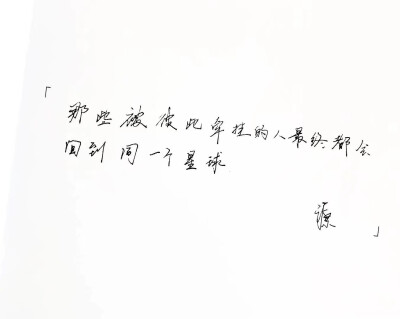 「
那些被彼此牵挂的人最终都会
回到同一个星球
源
」